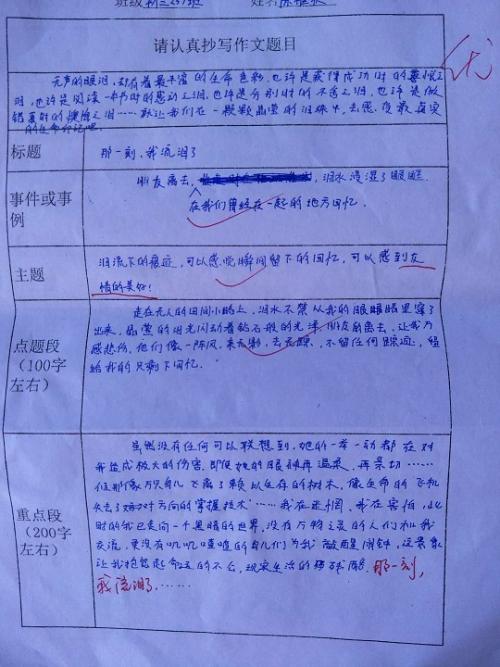 班级初三237班 姓名
请认真抄写作文题目
优
无声的眼泪,却有着最丰富的生命色彩,也许是获得成功时的喜悦之
泪,也许是阅读一本书时的感动之泪,也许是分别时的不舍之泪,也许是做
错事时的懊悔之泪……就让我们在一颗颗晶莹的泪珠中,去感
的生命印记吧。
标题
那一刻,我流泪了
事件或事例
朋友离去, 泪水浸湿了眼眶.
在我们曾经在一起的地方回忆.
主题
泪流下的痕迹,可以感觉瞬间留下的回忆,可以感到友
情的美好!
点题段
(100字
左右)
走在无人的田间小路上,泪水不禁从我的眼睛里
出来,晶莹的泪光闪动着钻石般的光泽 朋友的离去,让我万
感热伤,他们像一阵风,来无影,去无踪,不留任何踪迹,留
给我的只剩下回忆.
重点段
(200字
左右)
虽然没有任何可以联想到,她的一举一动都在对
我造成极大的伤害.即使她的眼神再温柔,再亲切……
但那像万只鸟儿飞离了赖以生存的树木,像生命的飞机
失去了 对方向的掌握技术……我在迷惘,我在害怕,此
时的我已走向一个黑暗的世界,没有万物之灵的人们和我
交流,更没有叽叽喳喳的鸟儿们为我敲醒闹钟,这景象
让我抱怨起命运的不公,现实生活的 那一刻,
我流泪了……